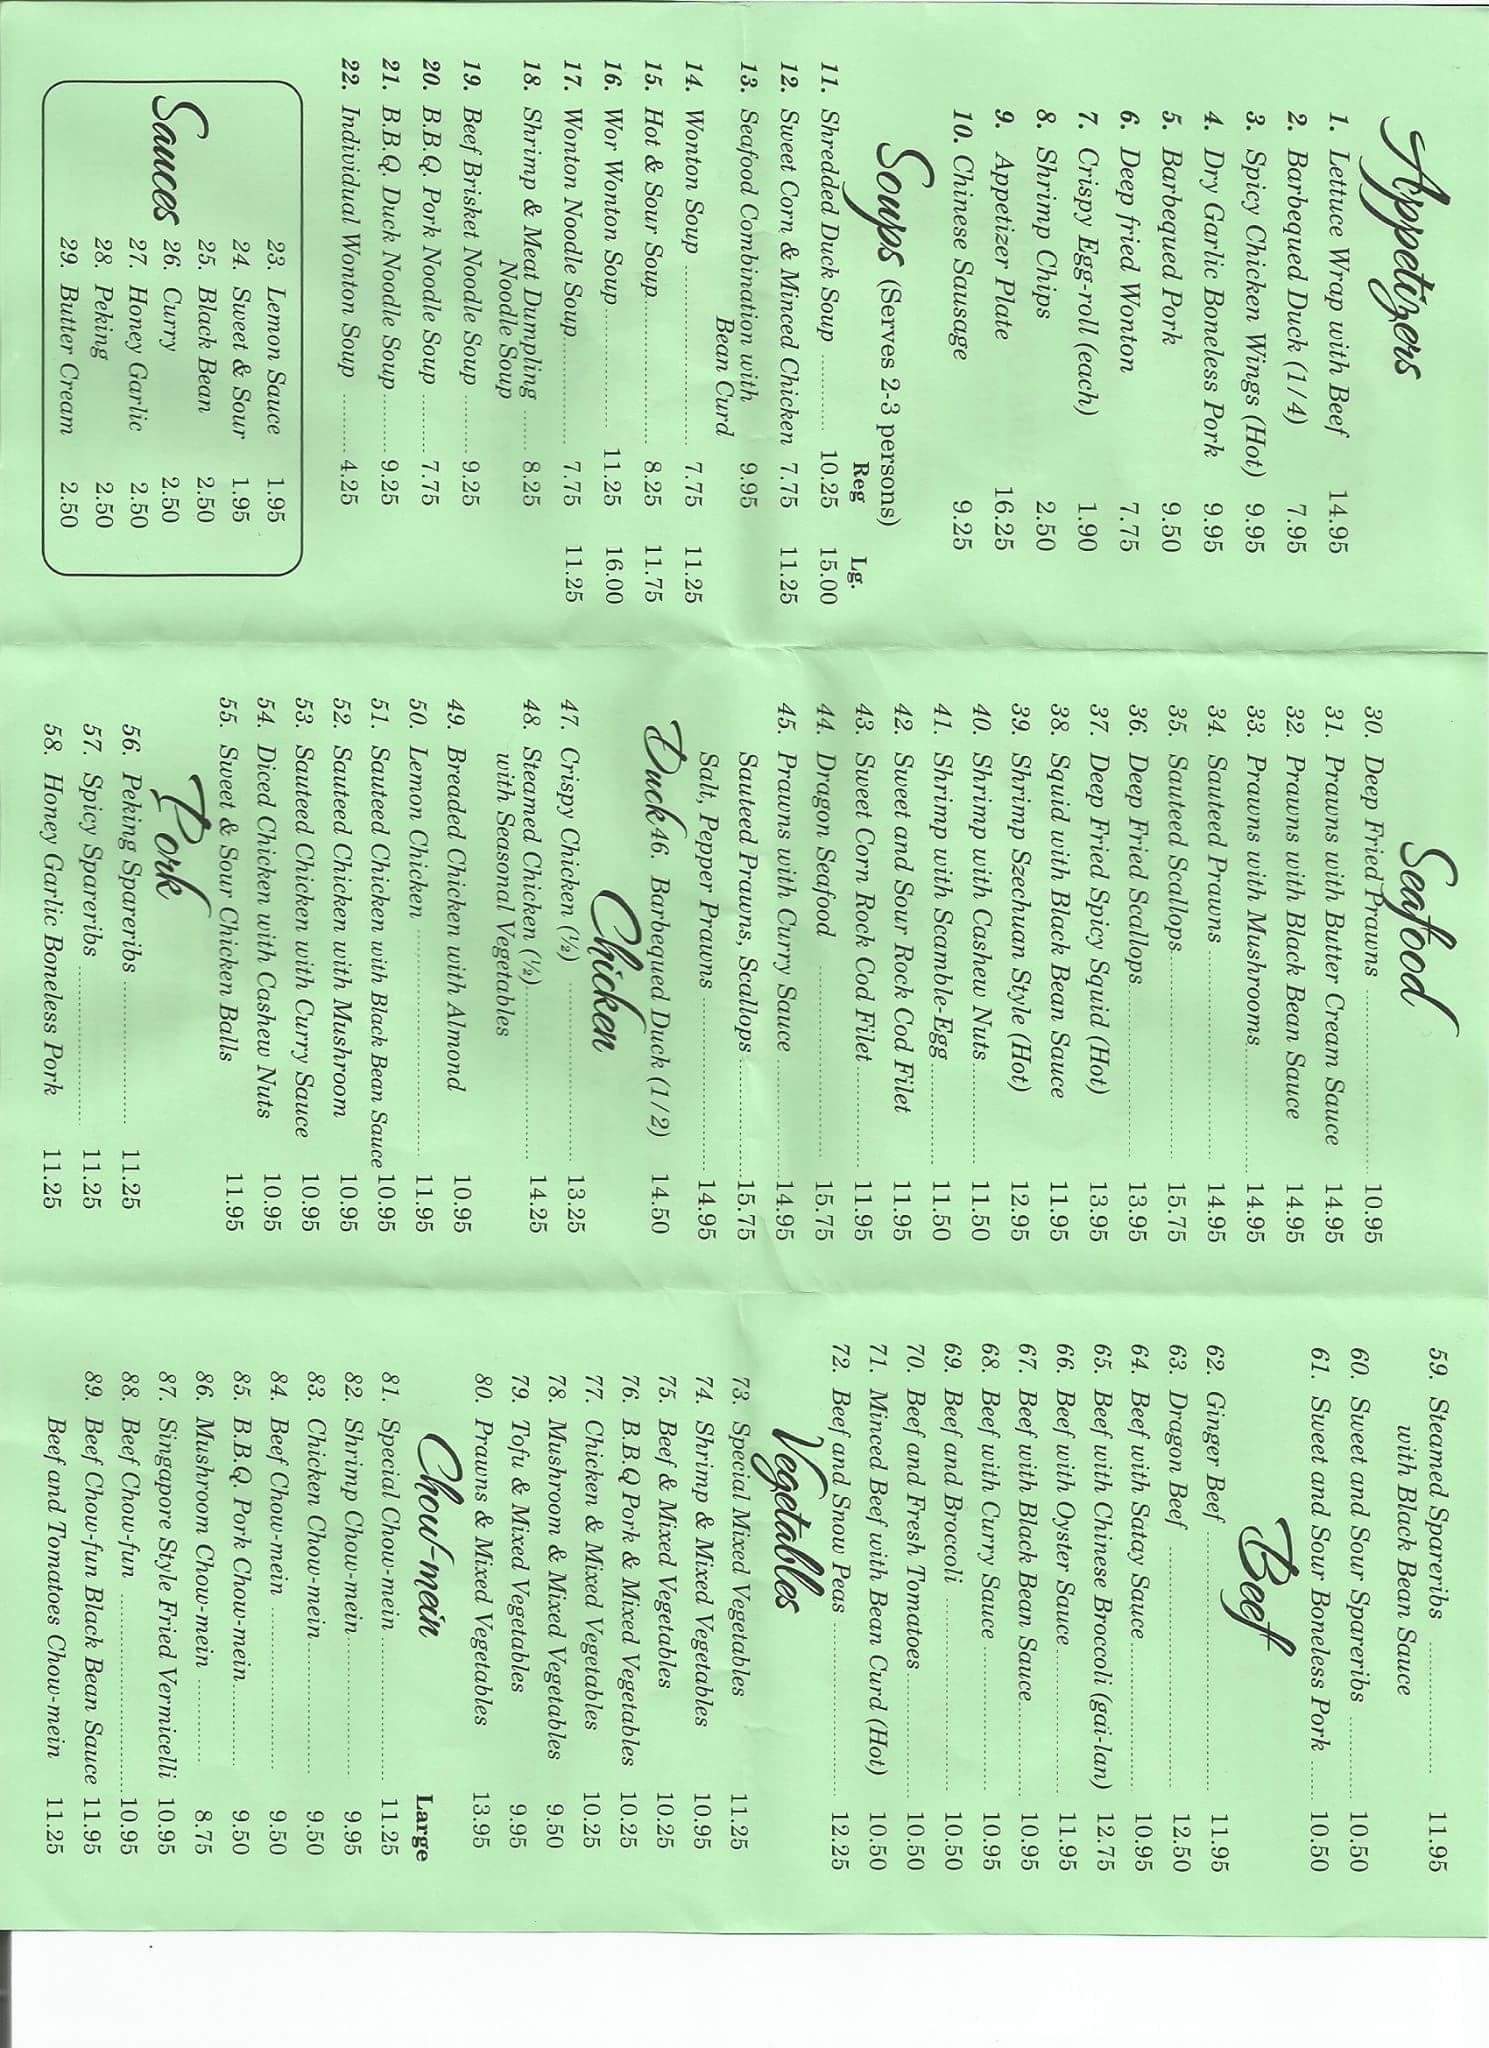 Appetizers
1. Lettuce Wrap with Beef 14.95
2. Barbequed Duck (1/4) 7.95
3. Spicy Chicken Wings (Hot) 9.95
4. Dry Garlic Boneless Pork 9.95
5. Barbequed Pork 9.50
6. Deep fried Wonton 7.75
7. Crispy Egg-roll (each) 1.90
8. Shrimp Chips 2.50
9. Appetizer Plate 16.25
10. Chinese Sausage 9.25
Soups (Serves 2-3 persons)
Reg Lg.
11. Shredded Duck Soup ........ 10.25 15.00
12. Sweet Corn & Minced Chicken 7.75 11.25
13. Seafood Combination with 9.95
Bean Curd
14. Wonton Soup ........ 7.75 11.25
15. Hot & Sour Soup........ 8.25 11.75
16. Wor Wonton Soup........ 11.25 16.00
17. Wonton Noodle Soup........ 7.75 11.25
18. Shrimp & Meat Dumpling ..... 8.25
Noodle Soup
19. Beef Brisket Noodle Soup ..... 9.25
20. B.B.Q. Pork Noodle Soup ....... 7.75
21. B.B.Q. Duck Noodle Soup....... 9.25
22. Individual Wonton Soup ....... 4.25
Sauces
23. Lemon Sauce 1.95
24. Sweet & Sour 1.95
25. Black Bean 2.50
26. Curry 2.50
27. Honey Garlic 2.50
28. Peking 2.50
29. Butter Cream 2.50
Seafood
30. Deep Fried Prawns ........ 10.95
31. Prawns with Butter Cream Sauce 14.95
32. Prawns with Black Bean Sauce 14.95
33. Prawns with Mushrooms........ 14.95
34. Sauteed Prawns ........ 14.95
35. Sauteed Scallops........ 15.75
36. Deep Fried Scallops........ 13.95
37. Deep Fried Spicy Squid (Hot) 13.95
38. Squid with Black Bean Sauce 11.95
39. Shrimp Szechuan Style (Hot) 12.95
40. Shrimp with Cashew Nuts........ 11.50
41. Shrimp with Scamble-Egg........ 11.50
42. Sweet and Sour Rock Cod Filet 11.95
43. Sweet Corn Rock Cod Filet ........ 11.95
44. Dragon Seafood ........ 15.75
45. Prawns with Curry Sauce ........14.95
Sauteed Prawns, Scallops........15.75
Salt, Pepper Prawns ........ 14.95
Duck 46. Barbequed Duck (1/2) 14.50
Chicken
47. Crispy Chicken (½) ........ 13.25
48. Steamed Chicken (½)........ 14.25
with Seasonal Vegetables
49. Breaded Chicken with Almond 10.95
50. Lemon Chicken ........ 11.95
51. Sauteed Chicken with Black Bean Sauce 10.95
52. Sauteed Chicken with Mushroom 10.95
53. Sauteed Chicken with Curry Sauce 10.95
54. Diced Chicken with Cashew Nuts 10.95
55. Sweet & Sour Chicken Balls 11.95
Pork
56. Peking Spareribs ........ 11.25
57. Spicy Spareribs ........ 11.25
58. Honey Garlic Boneless Pork 11.25
59. Steamed Spareribs ........ 11.95
with Black Bean Sauce
60. Sweet and Sour Spareribs ........ 10.50
61. Sweet and Sour Boneless Pork .... 10.50
Beef
62. Ginger Beef ........ 11.95
63. Dragon Beef ........ 12.50
64. Beef with Satay Sauce........ 10.95
65. Beef with Chinese Broccoli (gai-lan) 12.75
66. Beef with Oyster Sauce........ 11.95
67. Beef with Black Bean Sauce........ 10.95
68. Beef with Curry Sauce........ 10.95
69. Beef and Broccoli ........ 10.50
70. Beef and Fresh Tomatoes ........ 10.50
71. Minced Beef with Bean Curd (Hot) 10.50
72. Beef and Snow Peas ........ 12.25
Vegetables
73. Special Mixed Vegetables 11.25
74. Shrimp & Mixed Vegetables 10.95
75. Beef & Mixed Vegetables 10.25
76. B.B.Q Pork & Mixed Vegetables 10.25
77. Chicken & Mixed Vegetables 10.25
78. Mushroom & Mixed Vegetables 9.50
79. Tofu & Mixed Vegetables 9.95
80. Prawns & Mixed Vegetables 13.95
Chow-mein
Large
81. Special Chow-mein ........ 11.25
82. Shrimp Chow-mein........ 9.95
83. Chicken Chow-mein........ 9.50
84. Beef Chow-mein ........ 9.50
85. B.B.Q. Pork Chow-mein........ 9.50
86. Mushroom Chow-mein ........ 8.75
87. Singapore Style Fried Vermicelli 10.95
88. Beef Chow-fun ........ 10.95
89. Beef Chow-fun Black Bean Sauce 11.95
Beef and Tomatoes Chow-mein 11.25